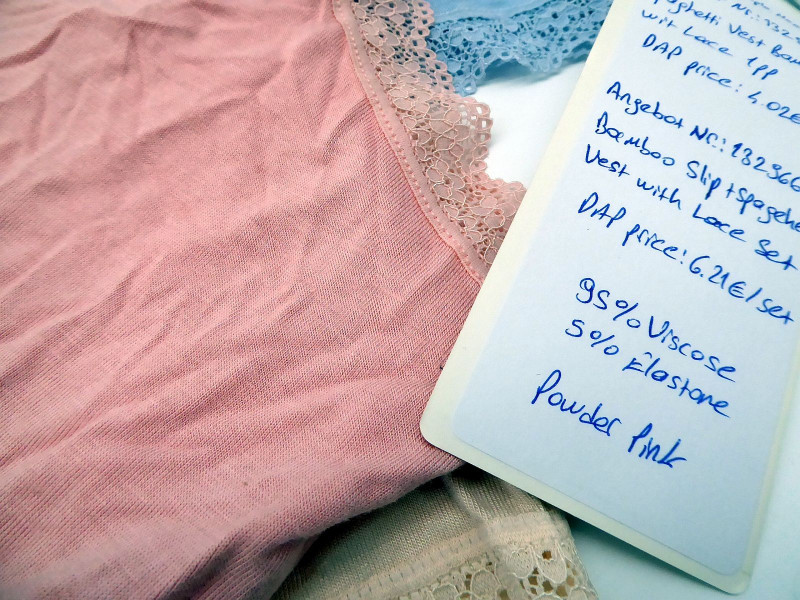 Nr.: 132
Spaghetti Vest Bam
wit Lace 1pp
DAP price: 4.02€
Angebot Nr.: 132966
Bamboo Slip + Spaghe
Vest with Lace Set
DAP price: 6.21€/set
95% Viscose
5% Elastane
Powder Pink